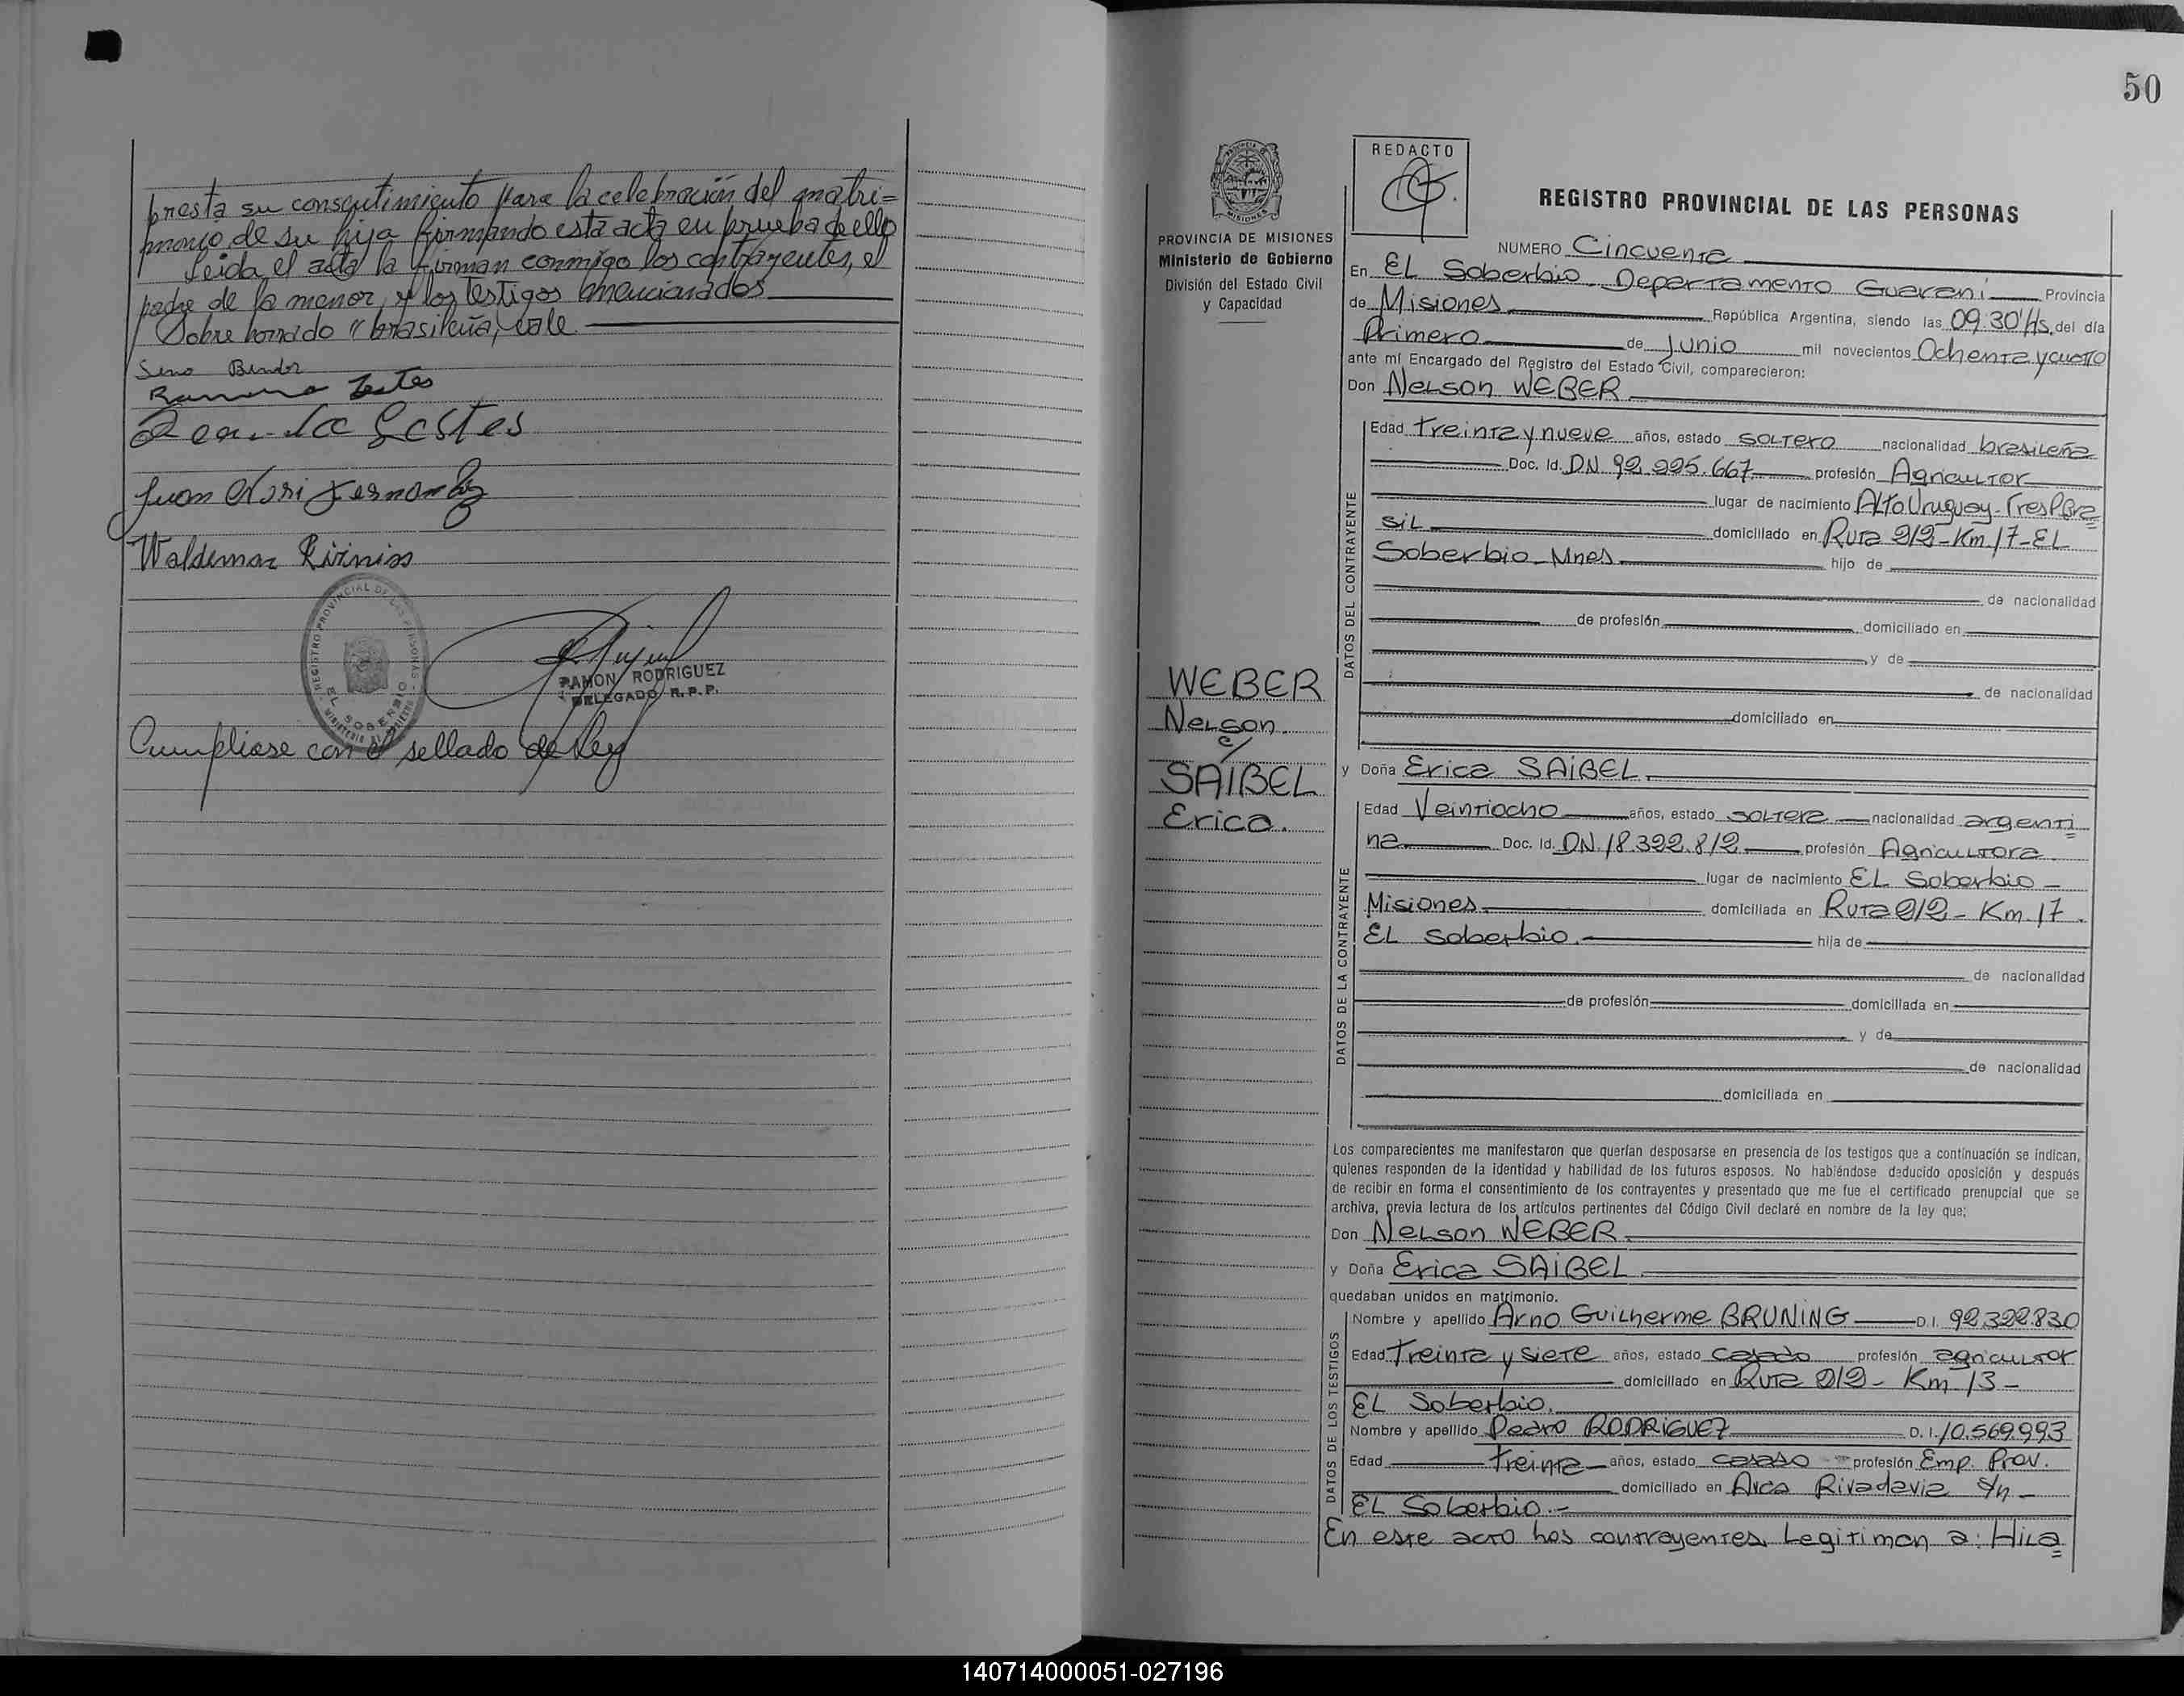 presta su consentimiento para la celebración del matri=
monio de su hija firmando esta acta en prueba de ello
Leida el acta la firman conmigo los contrayentes, el
padre de la menor y los testigos mencionados
Sobre borrado "brasileña, vale.
Juan
Waldemar
REGISTRO PROVINCIAL DE LAS PERSONAS
EL SOBERBIO
RAMON RODRIGUEZ
DELEGADO R.P.P.
Cumpliose con el sellado de Ley
50
PROVINCIA DE MISIONES
Ministerio de Gobierno
División del Estado Civil
y Capacidad
WEBER
Nelson
c/
SAIBEL
Erica.
REDACTO
REGISTRO PROVINCIAL DE LAS PERSONAS
NUMERO Cincuenta
En EL Soberbio Departamento Guaraní Provincia
de Misiones República Argentina, siendo las 09:30 Hs. del día
Primero de Junio mil novecientos Ochenta y cuatro
ante mí Encargado del Registro del Estado Civil, comparecieron:
Don Nelson WEBER
DATOS DEL CONTRAYENTE
Edad Treinta y nueve años, estado soltero nacionalidad brasileña
Doc. Id. DN 92.225.667 profesión Agricultor
lugar de nacimiento Alto Uruguay-Tres P. Bra=
sil domiciliado en Ruta 212-Km.17-EL
Soberbio-Mnes. hijo de
de nacionalidad
de profesión domiciliado en
y de
de nacionalidad
domiciliado en
y Doña Erica SAIBEL.
DATOS DE LA CONTRAYENTE
Edad Veintiocho años, estado soltera nacionalidad argenti=
na Doc. Id. DN.18.392.812 profesión Agricultora
lugar de nacimiento EL Soberbio-
Misiones. domiciliada en Ruta 212- Km.17.
EL Soberbio. hija de
de nacionalidad
de profesión domiciliada en
y de
de nacionalidad
domiciliada en
Los comparecientes me manifestaron que querían desposarse en presencia de los testigos que a continuación se indican,
quienes responden de la identidad y habilidad de los futuros esposos. No habiéndose deducido oposición y después
de recibir en forma el consentimiento de los contrayentes y presentado que me fue el certificado prenupcial que se
archiva, previa lectura de los artículos pertinentes del Código Civil declaré en nombre de la ley que;
Don Nelson WEBER
y Doña Erica SAIBEL
quedaban unidos en matrimonio.
DATOS DE LOS TESTIGOS
Nombre y apellido Arno Guilherme BRUNING D.I. 92.322.830
Edad Treinta y siete años, estado casado profesión agricultor
domiciliado en Ruta 212- Km 13-
EL Soberbio.
Nombre y apellido Pedro RODRIGUEZ D.I. 10.569.993
Edad treinta años, estado casado profesión Emp. Prov.
domiciliado en Avda Rivadavia s/n-
EL Soberbio.-
En este acto los contrayentes Legitiman a: Hila=
140714000051-027196